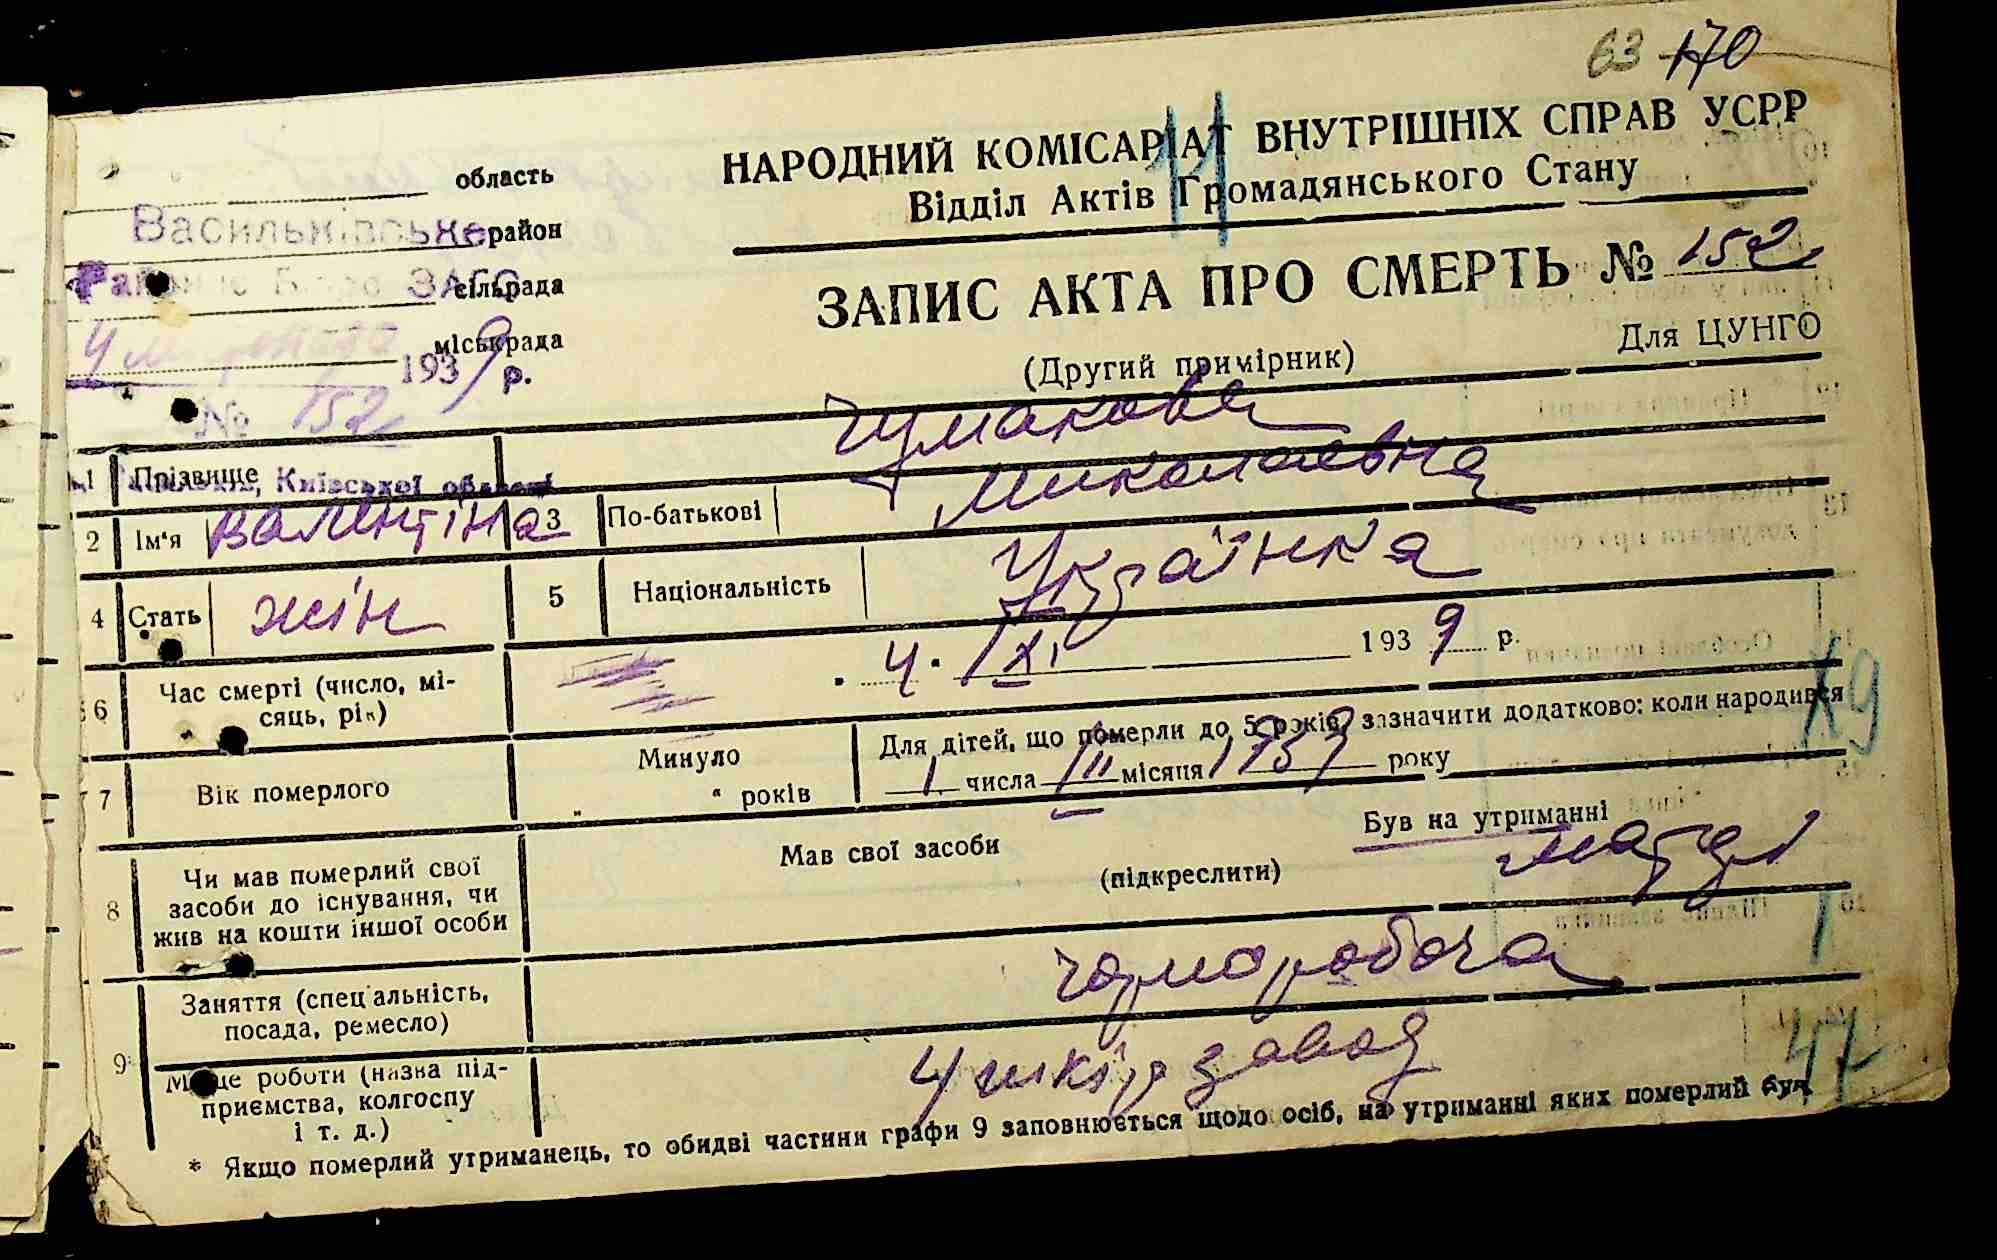 63 170
НАРОДНИЙ КОМІСАРІАТ ВНУТРІШНІХ СПРАВ УСРР
Відділ Актів Громадянського Стану
11
область
Васильківське район
Районне Бюро ЗАГС сільрада
міськрада
4 листопада 1939 р.
№ 152
ЗАПИС АКТА ПРО СМЕРТЬ № 152
(Другий примірник)
Для ЦУНГО
1 Прізвище Чумакова
Київської області
2 Ім'я Валентіна 3 По-батькові Миколаевна
4 Стать жін 5 Національність Українка
6 Час смерті (число, мі-
сяць, рік) 4. XI 1939 р.
7 Вік померлого Минуло
" " років
Для дітей, що померли до 5 років, зазначити додатково: коли народився
1 числа III місяця 1939 року
X9
8 Чи мав померлий свої
засоби до існування, чи
жив на кошти іншої особи
Мав свої засоби
(підкреслити)
Був на утриманні
матері
1
9 Заняття (спеціальність,
посада, ремесло) чорноробоча
Місце роботи (назва під-
приємства, колгоспу
і т. д.) 4 шкір завод
47
* Якщо померлий утриманець, то обидві частини графи 9 заповнюється щодо осіб, на утриманні яких померлий був.